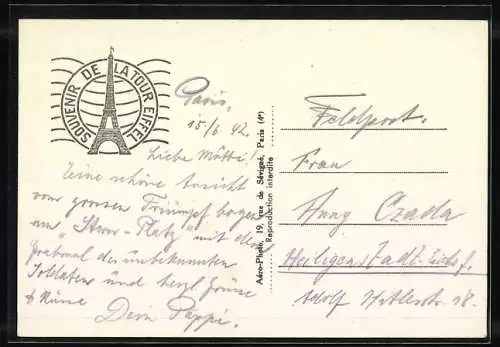 SOUVENIR DE LA TOUR EIFFEL
Paris,
15/6. 42.
Liebe Mutti!
Eine schöne Ansicht
vom grossen Triumpf bogen
am "Stern-Platz" mit dem
Grabmal des unbekannten
Soldaten und herzl. Grüsse
& Küsse
Dein Pappi.
Aéro-Photo, 19, rue de Sévigné, Paris (4e)
Reproduction interdite
Feldpost.
Frau
Anny Czada
Heiligenstadt
Adolf Hitlerstr. 18.